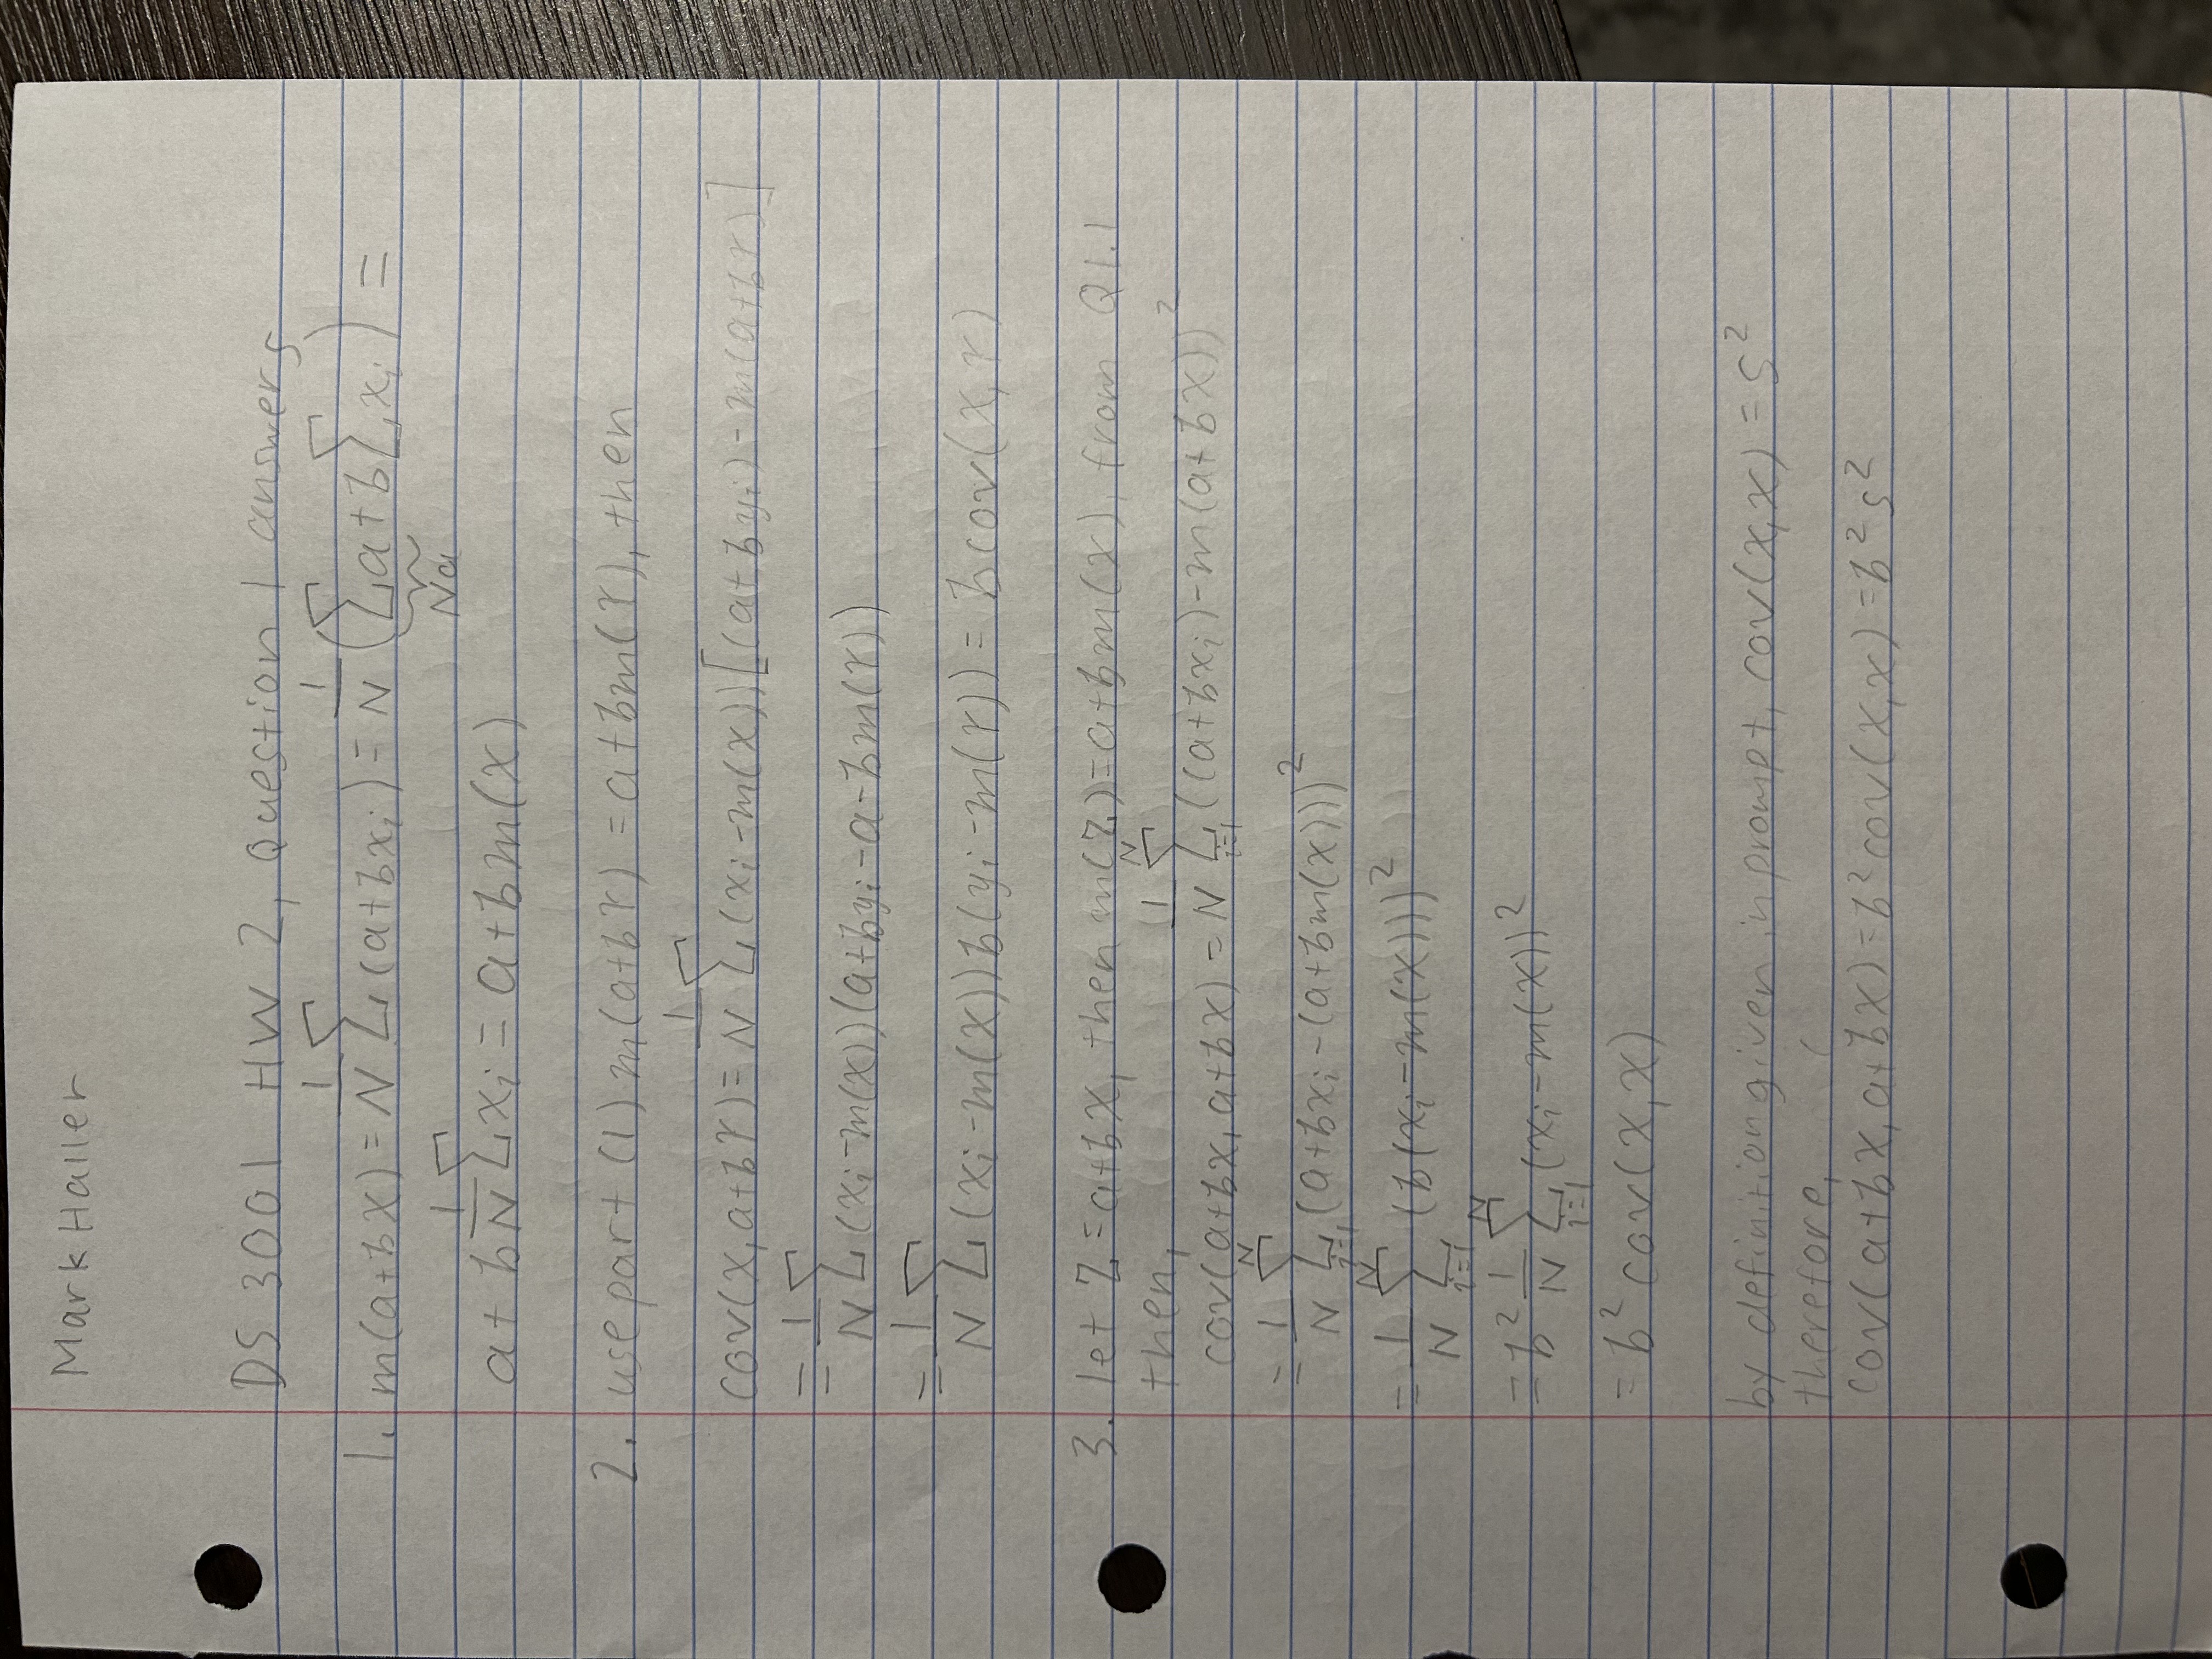 Mark Haller
DS 3001 HW 2, Question 1 answers
1. m(a+bX) = 1/N Σ(a+bxᵢ) = 1/N (Σa + bΣxᵢ) =
Na
a + b 1/N Σxᵢ = a+bm(X)
2. use part (1) m(a+bY) = a+bm(Y), then
cov(X, a+bY) = 1/N Σ(xᵢ-m(X))[(a+byᵢ)-m(a+bY)]
= 1/N Σ(xᵢ-m(X))(a+byᵢ-a-bm(Y))
= 1/N Σ(xᵢ-m(X))b(yᵢ-m(Y)) = bcov(X,Y)
3. let Z = a+bX, then m(Z)=a+bm(X), from Q1.1
then,
cov(a+bX, a+bX) = 1/N Σᵢ₌₁ᴺ ((a+bxᵢ)-m(a+bX))²
= 1/N Σᵢ₌₁ᴺ (a+bxᵢ-(a+bm(X)))²
= 1/N Σᵢ₌₁ᴺ (b(xᵢ-m(X)))²
= b² 1/N Σᵢ₌₁ᴺ (xᵢ-m(X))²
= b² cov(X,X)
by definition given in prompt, cov(X,X) = s²
therefore,
cov(a+bX, a+bX) = b² cov(X,X) = b² s²